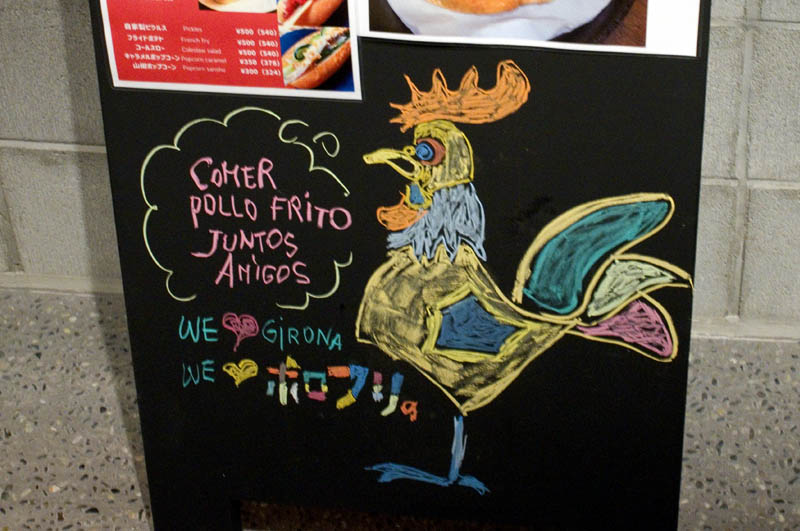 自家製ピクルス Pickles ¥500 (540)
フライドポテト French fry ¥500 (540)
コールスロー Coleslaw salad ¥500 (540)
キャラメルポップコーン Popcorn caramel ¥350 (378)
山椒ポップコーン Popcorn sansho ¥300 (324)
COMER
POLLO FRITO
JUNTOS
AMIGOS
WE GIRONA
WE ポロフリ